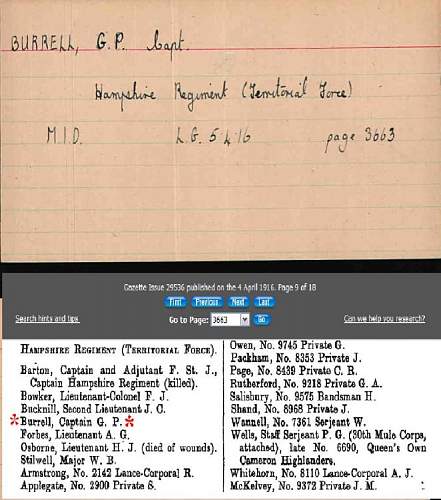 BURRELL, G.P. Capt.
Hampshire Regiment (Territorial Force)
M.I.D. L.G. 5 4 16 page 3663
Gazette Issue 29536 published on the 4 April 1916. Page 9 of 18
First Previous Next Last
Search hints and tips Go to Page: 3663 Go Can we help you research?
HAMPSHIRE REGIMENT (TERRITORIAL FORCE).
Barton, Captain and Adjutant F. St. J.,
Captain Hampshire Regiment (killed).
Bowker, Lieutenant-Colonel F. J.
Bucknill, Second Lieutenant J. C.
*Burrell, Captain G. P.*
Forbes, Lieutenant A. G.
Osborne, Lieutenant H. J. (died of wounds).
Stilwell, Major W. B.
Armstrong, No. 2142 Lance-Corporal R.
Applegate, No. 2900 Private S.
Owen, No. 9745 Private G.
Packham, No. 8353 Private J.
Page, No. 8439 Private C. R.
Rutherford, No. 9218 Private G. A.
Salisbury, No. 9575 Bandsman H.
Shand, No. 8968 Private J.
Wannell, No. 7361 Serjeant W.
Wells, Staff Serjeant P. G. (30th Mule Corps,
attached), late No. 6690, Queen's Own
Cameron Highlanders.
Whitehorn, No. 8110 Lance-Corporal A. J.
McKelvey, No. 9372 Private J. M.